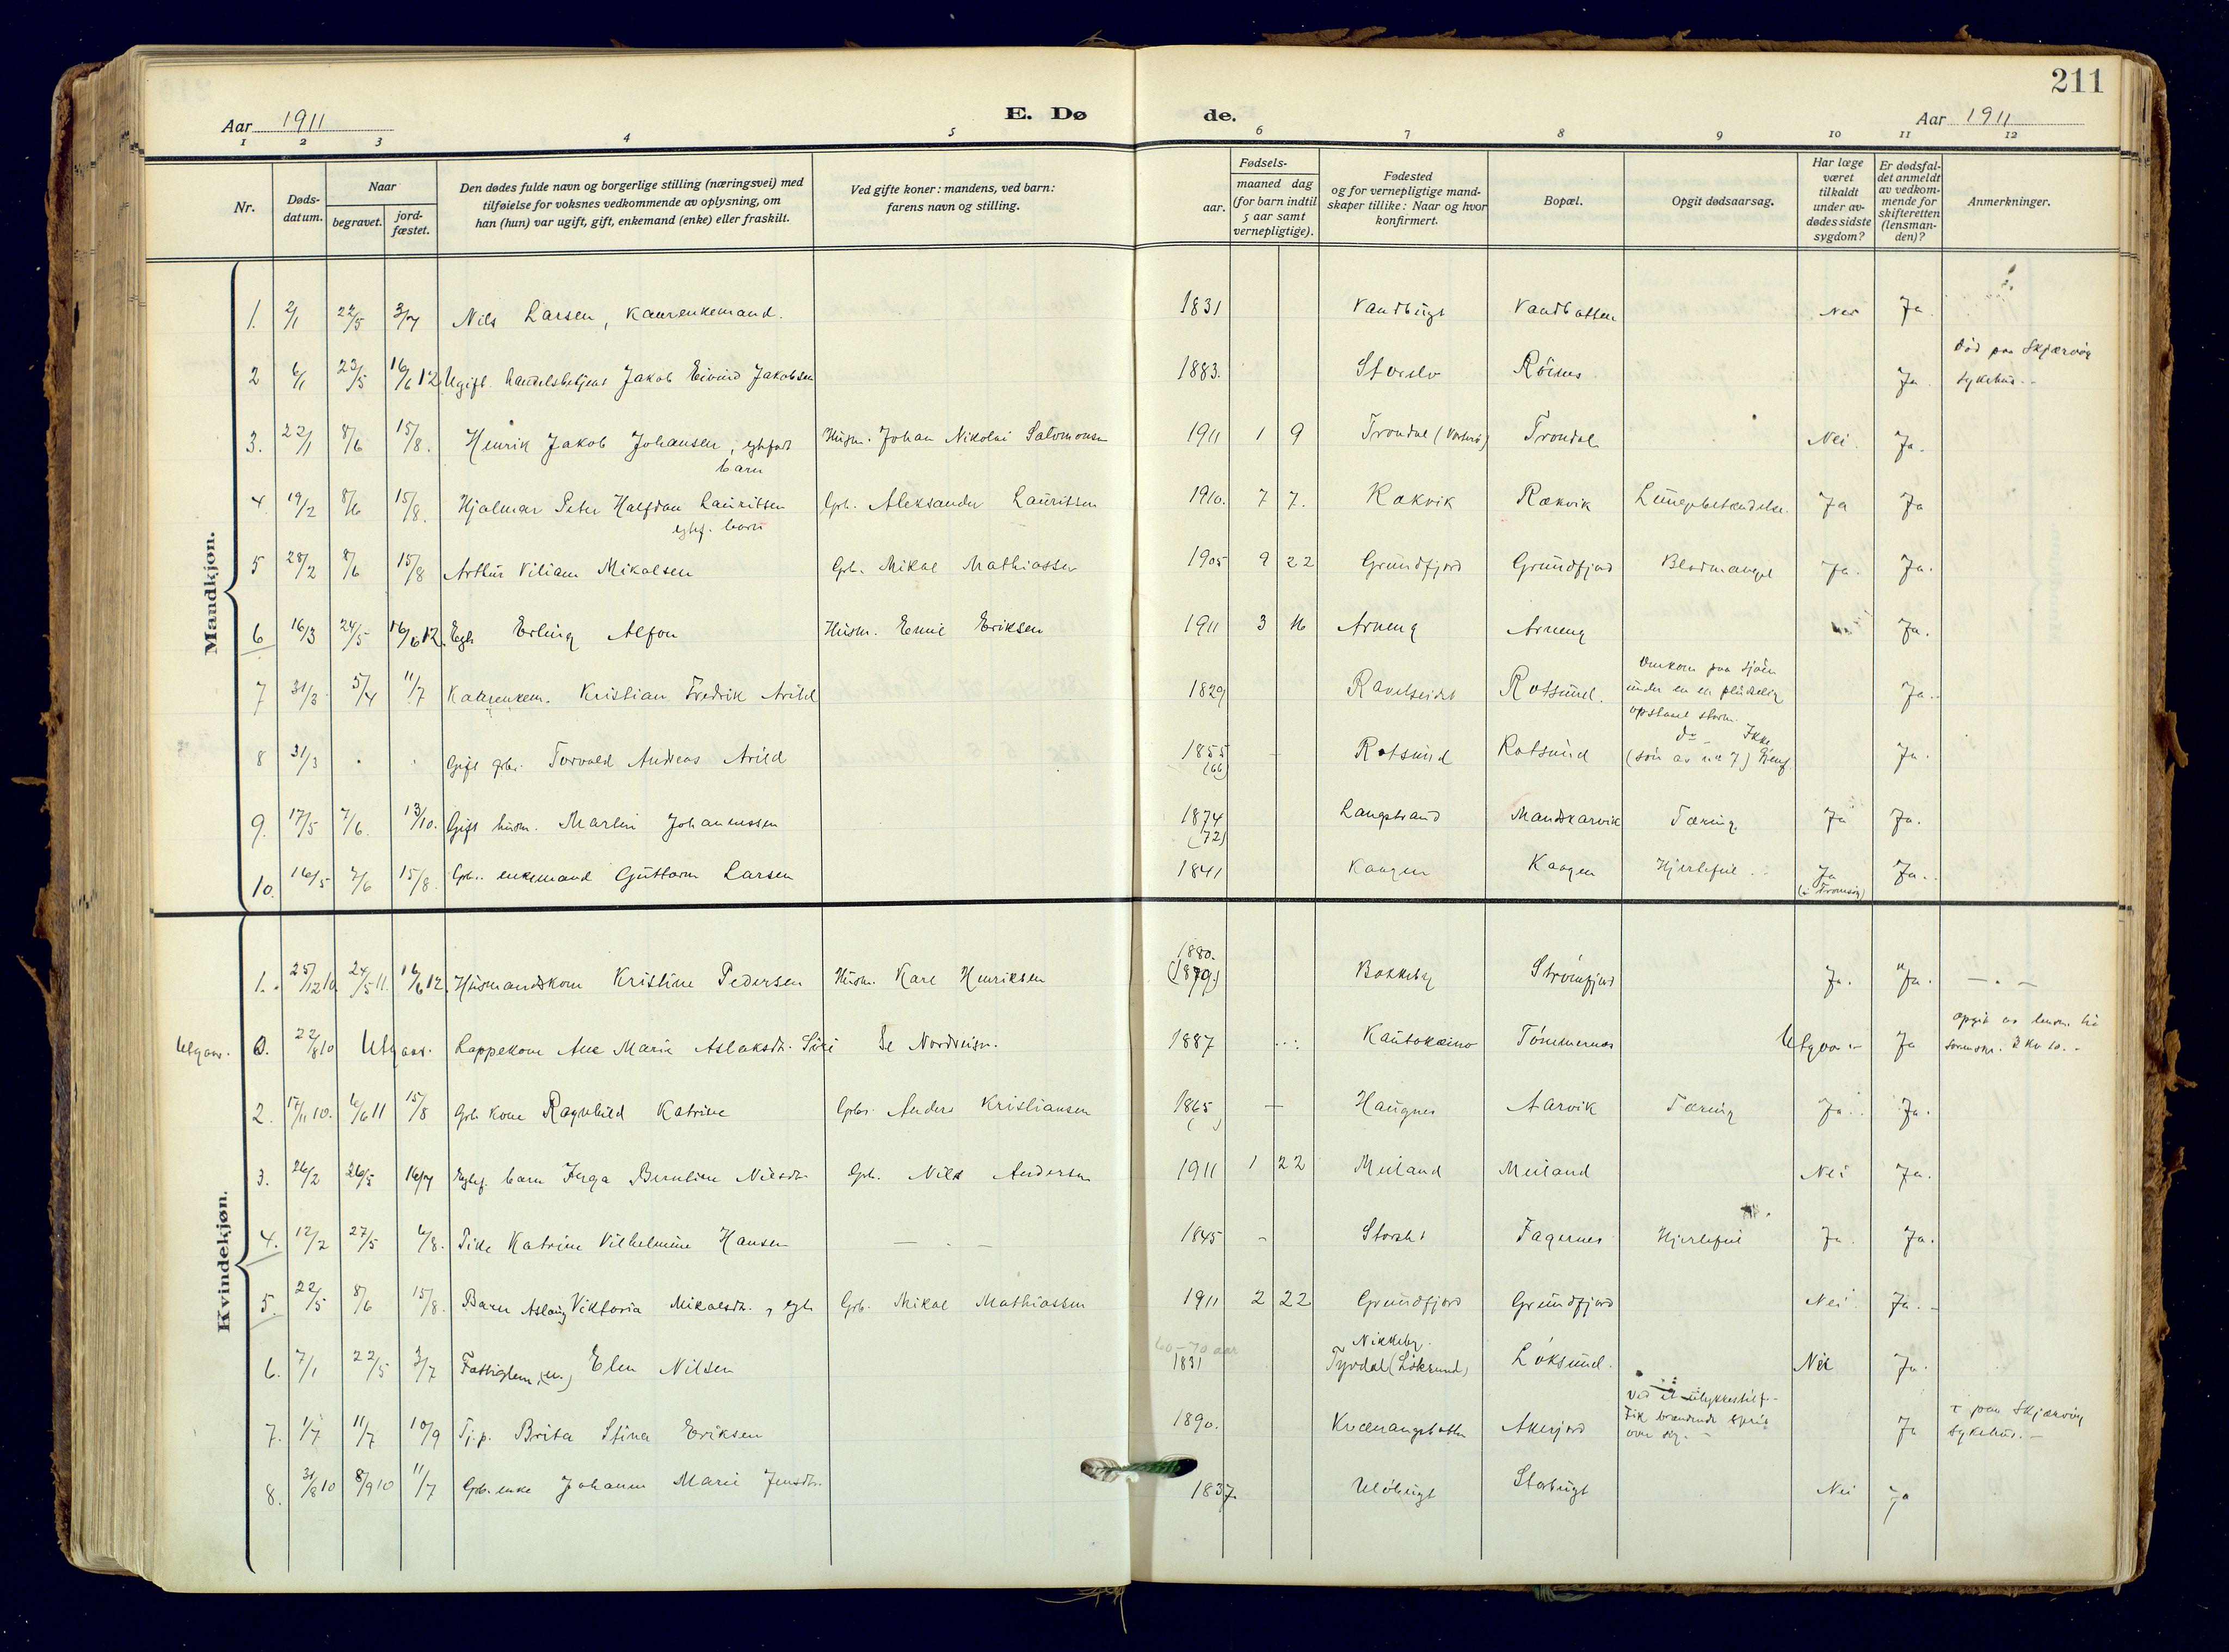 211
Aar 1911
E. Dø
de.
Aar 1911
1 2 3 4 5 6 7 8 9 10 11 12
Nr.
Døds-
datum.
Naar
begravet.
jord-
fæstet.
Den dødes fulde navn og borgerlige stilling (næringsvei) med
tilføielse for voksnes vedkommende av oplysning, om
han (hun) var ugift, gift, enkemand (enke) eller fraskilt.
Ved gifte koner: mandens, ved barn:
farens navn og stilling.
Fødsels-
aar.
maaned dag
(for barn indtil
5 aar samt
vernepligtige).
Fødested
og for vernepligtige mand-
skaper tillike: Naar og hvor
konfirmert.
Bopæl.
Opgit dødsaarsag.
Har læge
været
tilkaldt
under av-
dødes sidste
sygdom?
Er dødsfal-
det anmeldt
av vedkom-
mende for
skifteretten
(lensman-
den)?
Anmerkninger.
Mandkjøn.
1. 2/1 22/5 3/7 Nils Larsen, Kaarenkemand. 1831 Vandbugt Vandbotten Nei Ja.
Død paa Skjærvøy
2 6/1 23/5 16/6 12 Ugift handelsbetjent Jakob Eivind Jakobsen 1883. Storslet Röines Ja. sykehus.
3. 22/1 8/6 15/8. Henrik Jakob Johansen, egtefødt Husm. Johan Nikolai Salomonsen 1911 1 9 Trondal Trondal Nei. Ja.
barn
4. 19/2 8/6 15/8. Hjalmar Peter Halfdan Lauritsen Grb. Aleksander Lauritsen 1910. 7 7. Rækvik Rækvik Lungebetændelse. Ja Ja
egtef. barn
5 28/2 8/6 15/8 Arthur Viliam Mikalsen Grb. Mikal Mathiassen 1905 9 22 Grundfjord Grundfjord Blodmangel Ja. Ja.
6 16/3 24/5 16/6 12. Egtf. Erling Alfon Husm. Emil Eriksen 1911 3 16 Arneng Arneng Ja.
Omkom paa sjöen
7 31/3 5/4 11/7 Kaarenkem. Kristian Fredrik Arild 1829 Ravelseidet Rotsund. under en en pludselig Ja.
opstaaet storm.
8 31/3 Gift grbr. Torvald Andreas Arild 1855 Rotsund Rotsund do Ikke
(66) (sön av nr 7) Ja.
9. 17/5 7/6. 13/10. Gift husm. Martin Johannessen 1874 Langstrand Mandskarvik Tæring. Ja Ja.
(72)
10. 16/5 7/6 15/8. Grb. enkemand Guttorm Larsen 1841 Kaagen Kaagen Hjertefeil. Ja Ja.
(i Tromsøy)
Kvindekjøn.
1880.
1. 25/12 10 24/5 11. 16/6 12. Husmandskone Kristine Pedersen Husm. Karl Henriksen (1879.) Bakkeby Strömfjord Ja. Ja. — . —
Utgaar. 0. 22/8 10 Utgaar. Lappekone Ane Marie Aslaksdt. Siri Se Nordreisn. 1887 Kautokeino Tömmernes Utgaar Ja opgit av lensm. til
2. 17/11 10. 6/6 11 15/8 Grb kone Ragnhild Katrine Grbr. Anders Kristiansen 1865 — Haugnes Aarvik Tæring Ja. Ja.
3. 26/2 26/5 16/7 Egtef. barn Inga Berntine Nilsdt. Grb. Nils Andersen 1911 1 22 Meiland Meiland Nei Ja.
4. 12/2 27/5 6/8. Pike Katrine Vilhelmine Hansen — . — 1845 - Storslet Fagernes Hjertefeil Ja. Ja.
5. 22/5 8/6 15/8. Barn Aslaug Viktoria Mikalsdt., egt. Grb. Mikal Mathiassen 1911 2 22 Grundfjord Grundfjord Nei Ja.
60-70 aar Nikkeby.
6. 7/1 22/5 3/7 Fattiglem, (u.) Elen Nilsen 1831 Tyvdal (Löksund) Löksund. Nei Ja.
Ved et ulykkestilf.
7. 1/7 11/7 10/9 Tj.p. Brita Stina Eriksen 1890. Kvænangsbotn Akerjord Fik brændende sprit Ja + paa Skjærvöy
over sig. sykehus.
8. 31/8 10 8/9 10 11/7 Grb. enke Johanne Marie Jensdt. 1837. Ulöbugt Storbugt Nei Ja